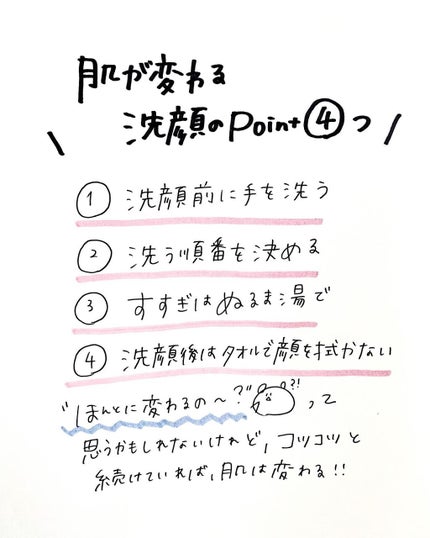 肌が変わる
\ 洗顔のPoint④つ /
① 洗顔前に手を洗う
② 洗う順番を決める
③ すすぎはぬるま湯で
④ 洗顔後はタオルで顔を拭かない
"ほんとに変わるの〜?" ?! って
思うかもしれないけれど, コツコツと
続けていれば, 肌は変わる!!